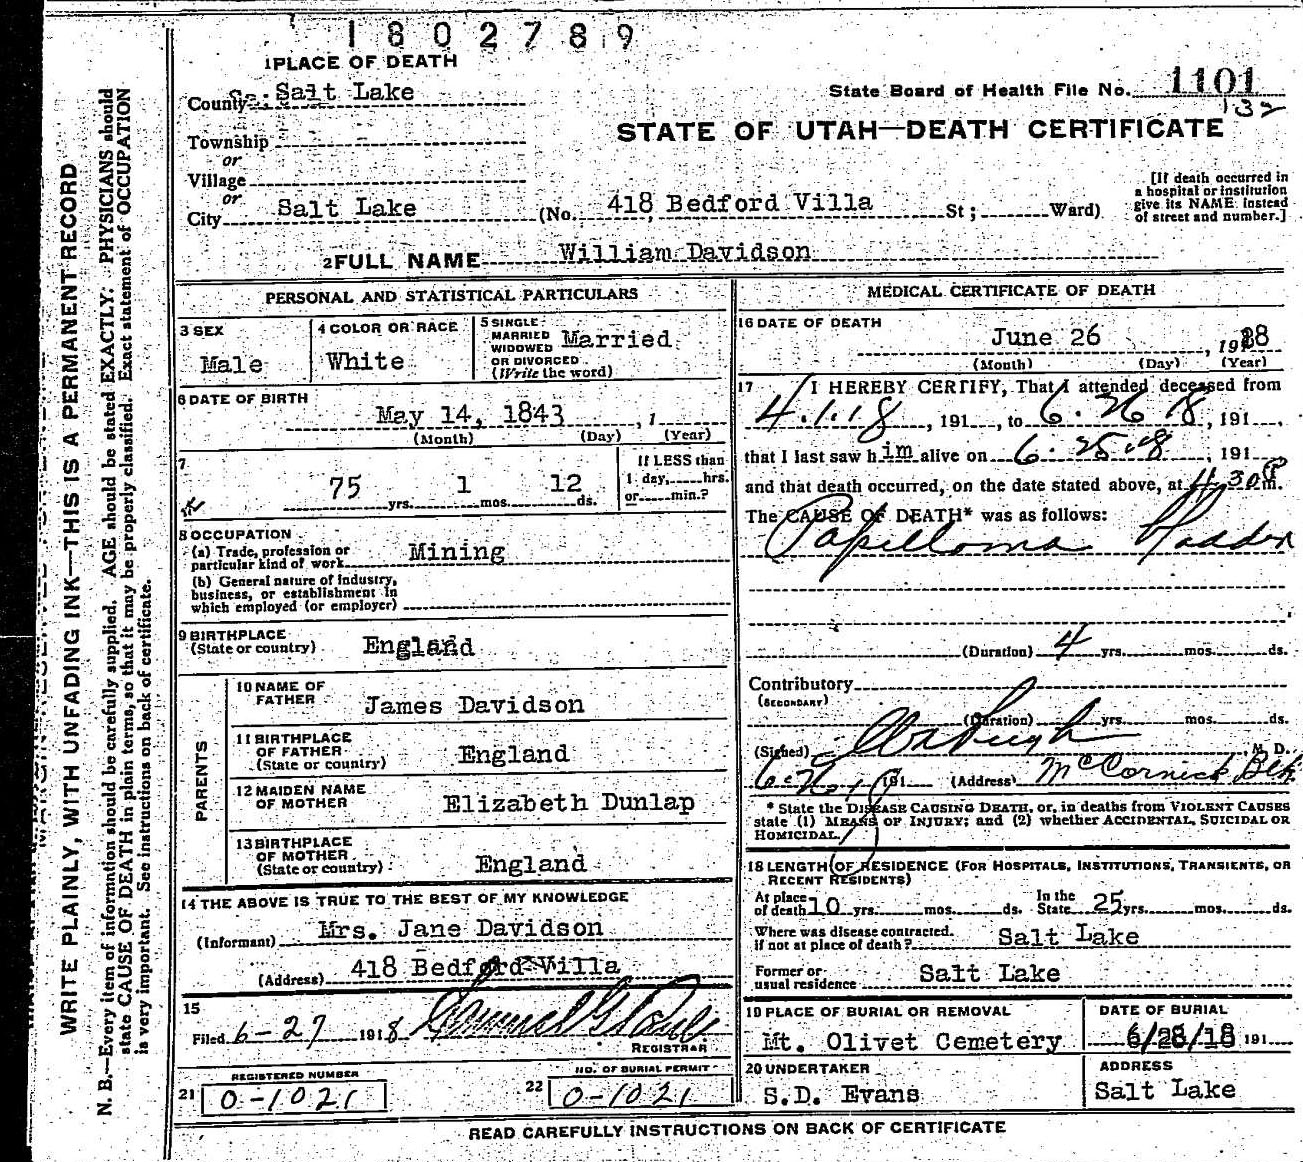 1802789
1 PLACE OF DEATH
County Salt Lake
State Board of Health File No. 1101
132
Township -
or
STATE OF UTAH—DEATH CERTIFICATE
Village
or
City Salt Lake (No. 418 Bedford Villa St; Ward)
[If death occurred in
a hospital or institution
give its NAME instead
of street and number.]
2 FULL NAME William Davidson
PERSONAL AND STATISTICAL PARTICULARS
3 SEX
Male
4 COLOR OR RACE
White
5 SINGLE
MARRIED
WIDOWED
OR DIVORCED
(Write the word)
Married
6 DATE OF BIRTH
May 14, 1843, 1
(Month) (Day) (Year)
7
75 yrs. 1 mos. 12 ds.
If LESS than
1 day, hrs.
or min.?
8 OCCUPATION
(a) Trade, profession or
particular kind of work Mining
(b) General nature of industry,
business, or establishment in
which employed (or employer)
9 BIRTHPLACE
(State or country) England
PARENTS
10 NAME OF
FATHER James Davidson
11 BIRTHPLACE
OF FATHER
(State or country) England
12 MAIDEN NAME
OF MOTHER Elizabeth Dunlap
13 BIRTHPLACE
OF MOTHER
(State or country) England
14 THE ABOVE IS TRUE TO THE BEST OF MY KNOWLEDGE
(Informant) Mrs. Jane Davidson
(Address) 418 Bedford Villa
15
Filed 6-27 1918
REGISTRAR
REGISTERED NUMBER
21 0-1021
NO. OF BURIAL PERMIT
22 0-1021
MEDICAL CERTIFICATE OF DEATH
16 DATE OF DEATH
June 26, 1918
(Month) (Day) (Year)
17 I HEREBY CERTIFY, That I attended deceased from
4.1.18, 191, to 6.26 18, 191,
that I last saw him alive on 6.25.18, 191
and that death occurred, on the date stated above, at 4.30 P m.
The CAUSE OF DEATH* was as follows:
Papilloma
(Duration) 4 yrs. mos. ds.
Contributory
(SECONDARY)
(Duration) yrs. mos. ds.
(Signed) M. D.
191 (Address) McCornick Blk
* State the DISEASE CAUSING DEATH, or, in deaths from VIOLENT CAUSES
state (1) MEANS OF INJURY; and (2) whether ACCIDENTAL, SUICIDAL OR
HOMICIDAL.
18 LENGTH OF RESIDENCE (FOR HOSPITALS, INSTITUTIONS, TRANSIENTS, OR
RECENT RESIDENTS)
At place
of death 10 yrs. mos. ds.
In the
State 25 yrs. mos. ds.
Where was disease contracted.
if not at place of death? Salt Lake
Former or
usual residence Salt Lake
19 PLACE OF BURIAL OR REMOVAL
Mt. Olivet Cemetery
DATE OF BURIAL
6/28/18 191
20 UNDERTAKER
S.D. Evans
ADDRESS
Salt Lake
READ CAREFULLY INSTRUCTIONS ON BACK OF CERTIFICATE
WRITE PLAINLY, WITH UNFADING INK—THIS IS A PERMANENT RECORD
N. B.—Every item of information should be carefully supplied. AGE should be stated EXACTLY. PHYSICIANS should
state CAUSE OF DEATH in plain terms, so that it may be properly classified. Exact statement of OCCUPATION
is very important. See instructions on back of certificate.